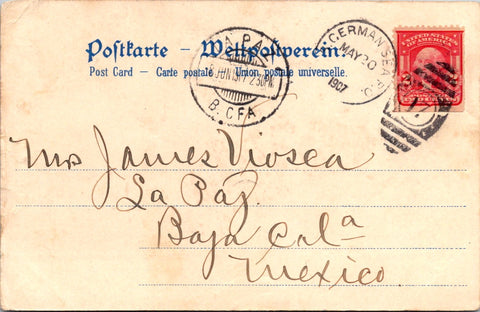 Postkarte - Weltpostverein
Post Card — Carte postale — Union postale universelle.
LA PAZ
B. CFA.
GERMAN SEA P.O.
MAY 30
1907
UNITED STATES OF AMERICA
Mrs James Viosca
La Paz.
Baja Calª
Mexico.